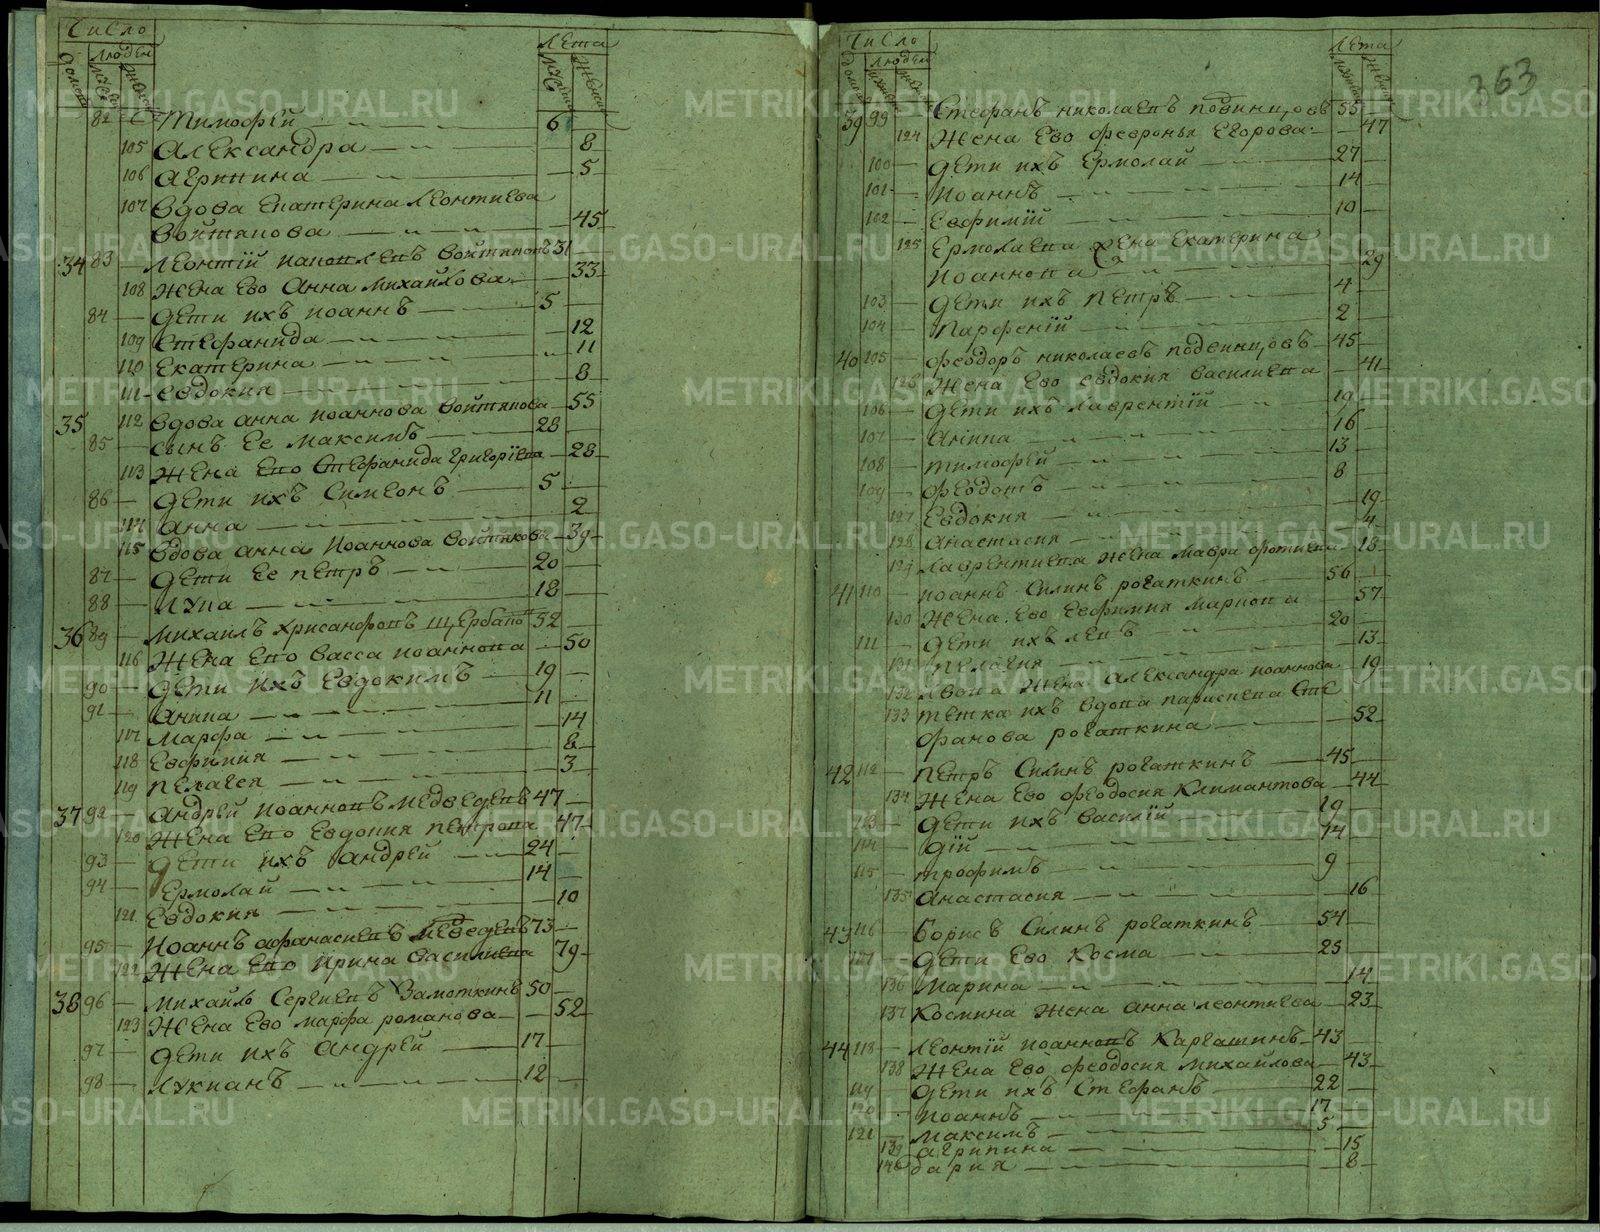 Число
Людей
Лета
82 Тимофей 6
105 Александра 8
106 Агрипина 5
107 Вдова Екатерина Леонтиева
Войтякова 45
34 83 Леонтiй Иаковлевъ Войтяковъ 31
108 Жена Ево Анна Михайлова 33
84 Дети ихъ Иоаннъ 5
109 Стефанида 12
110 Екатерина 11
111 Евдокия 8
35 112 Вдова Анна Иоаннова Войтякова 55
85 Сынъ Ее Максимъ 28
113 Жена Ево Стефанида Григорiева 28
86 Дети ихъ Симеонъ 5
114 Анна 2
115 Вдова Анна Иоаннова Войтякова 39
87 Дети Ее Петръ 20
88 Лука 18
36 89 Михаилъ Хрисанфовъ Щербако 52
116 Жена Ево Васса Иоаннова 50
90 Дети ихъ Евдокимъ 19
91 Аника 11
117 Марфа 14
118 Евфимия 6
119 Пелагея 3
37 92 Андрей Иоанновъ Медведевъ 47
120 Жена Ево Евдокия Петрова 47
93 Дети ихъ Андрей 24
94 Ермолай 14
121 Евдокия 10
95 Иоаннъ Афанасиевъ Медведевъ 73
122 Жена Ево Ирина Василиева 79
38 96 Михайло Сергиевъ Замоткинъ 50
123 Жена Ево Марфа Романова 52
97 Дети ихъ Андрей 17
98 Лукианъ 12
363
Число
Людей
Лета
39 99 Стефанъ Николаевъ Повинцовъ 55
124 Жена Ево Февронья Егорова 47
100 Дети ихъ Ермолай 27
101 Иоаннъ 14
102 Евфимiй 10
125 Ермолаева Жена Екатерина
Иоаннова 29
103 Дети ихъ Петръ 4
104 Парфенiй 2
40 105 Феодоръ Николаевъ Подвинцовъ 45
126 Жена Ево Евдокия Василиева 41
106 Дети ихъ Лаврентiй 19
107 Аника 16
108 Тимофей 13
109 Феодотъ 8
127 Евдокия 19
128 Анастасия 4
129 Лаврентиева Жена Мавра 18
41 110 Иоаннъ Силинъ Рогаткинъ 56
130 Жена Ево Евфимия Маркова 57
111 Дети ихъ Левъ 20
131 Пелагия 13
132 Львова Жена Александра Иоаннова 19
133 Тетка ихъ Вдова Парасиева Сте
фанова Рогаткина 52
42 112 Петръ Силинъ Рогаткинъ 45
134 Жена Ево Феодосия Климантова 44
113 Дети ихъ Василiй 19
114 Дiй 14
115 Трофимъ 9
135 Анастасия 16
43 116 Борисъ Силинъ Рогаткинъ 54
117 Дети Ево Косма 25
136 Марина 14
137 Космина Жена Анна Леонтиева 23
44 118 Леонтiй Иоанновъ Каргашинъ 43
138 Жена Ево Феодосия Михайлова 43
119 Дети ихъ Стефанъ 22
120 Иоаннъ 17
121 Максимъ 5
139 Агрипина 15
140 Дария 8
METRIKI.GASO-URAL.RU